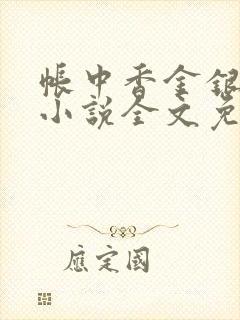 帳中香金銀
小說全文免
應定國